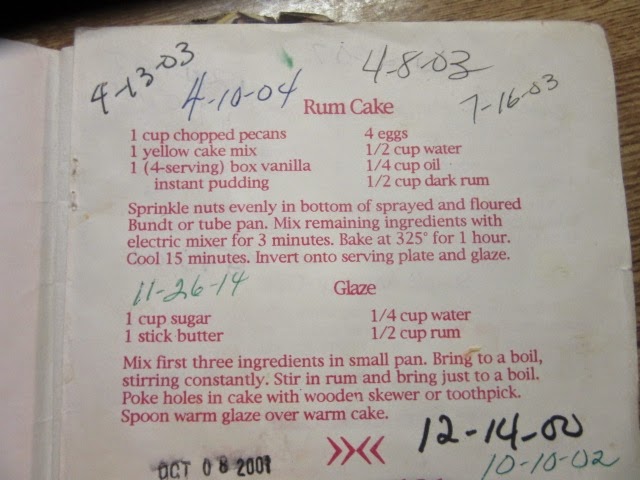 4-13-03
4-10-04
4-8-03
7-16-03
Rum Cake
1 cup chopped pecans
1 yellow cake mix
1 (4-serving) box vanilla
instant pudding
4 eggs
1/2 cup water
1/4 cup oil
1/2 cup dark rum
Sprinkle nuts evenly in bottom of sprayed and floured
Bundt or tube pan. Mix remaining ingredients with
electric mixer for 3 minutes. Bake at 325° for 1 hour.
Cool 15 minutes. Invert onto serving plate and glaze.
11-26-14
Glaze
1 cup sugar
1 stick butter
1/4 cup water
1/2 cup rum
Mix first three ingredients in small pan. Bring to a boil,
stirring constantly. Stir in rum and bring just to a boil.
Poke holes in cake with wooden skewer or toothpick.
Spoon warm glaze over warm cake.
12-14-00
OCT 08 2001
10-10-02